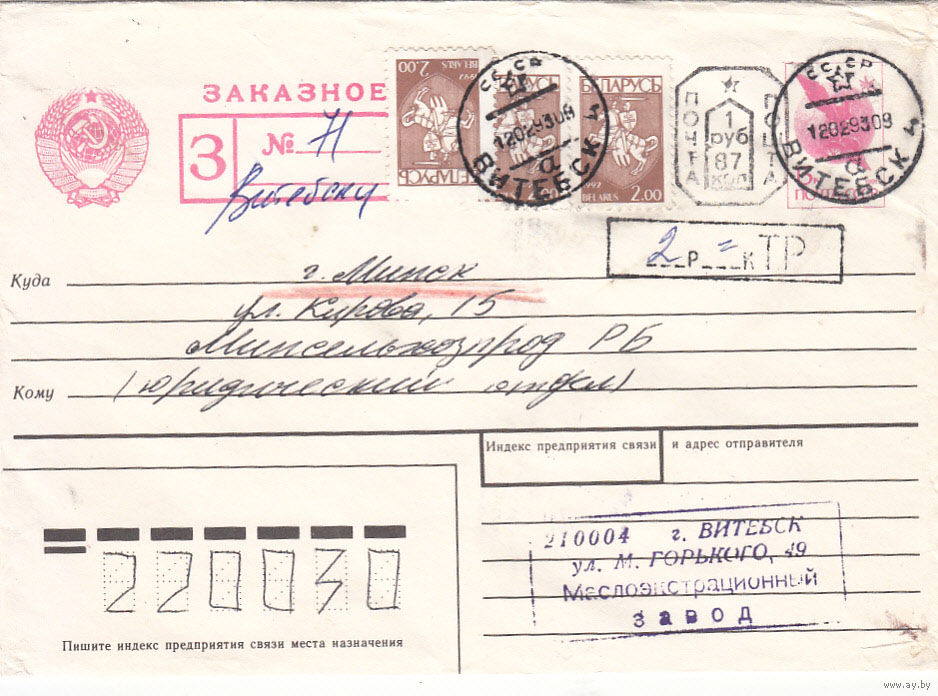 ЗАКАЗНОЕ
З № 71
Витебск
2.00
BELARUS 1992
БЕЛАРУСЬ
БЕЛАРУСЬ
1992
2.00
БЕЛАРУСЬ
1992
BELARUS 2.00
СССР
12029308
ВИТЕБСК
ПОЧТА
1
руб
87
коп
ПОШТА
СССР
12029308
ВИТЕБСК
2 Р = К ТР
Куда г. Минск
ул. Кирова, 15
Минсельхозпрод РБ
Кому (юридический отдел)
Индекс предприятия связи и адрес отправителя
210004 г. ВИТЕБСК
ул. М. ГОРЬКОГО, 49
Маслоэкстрационный
завод
220030
Пишите индекс предприятия связи места назначения
www.ay.by